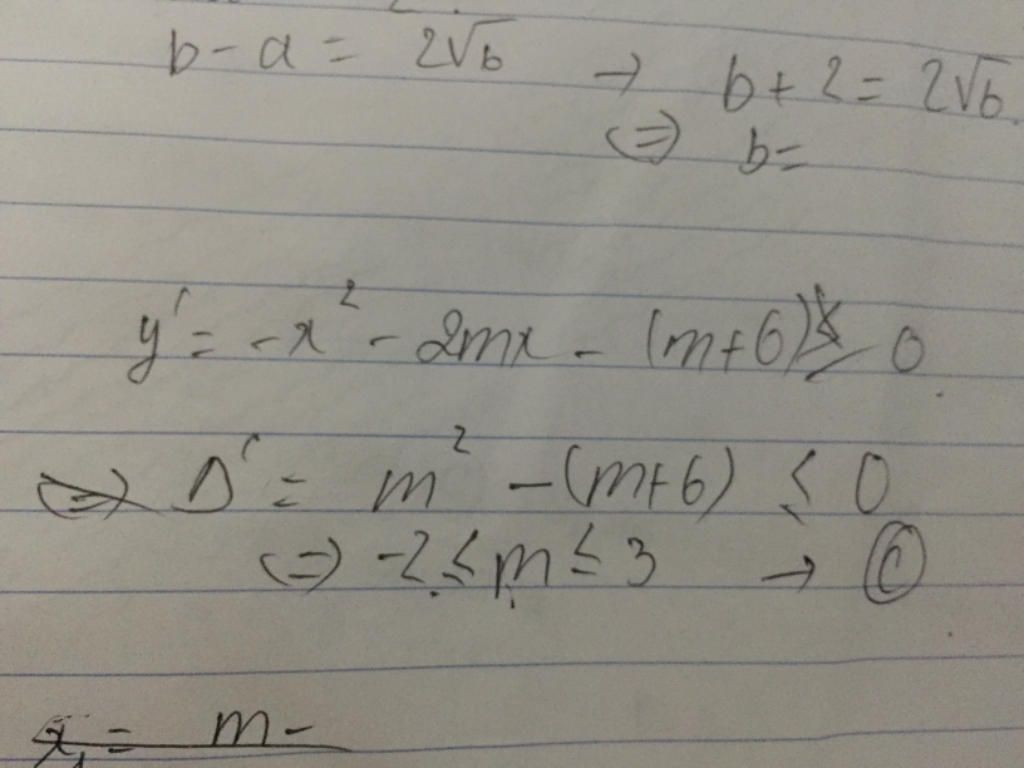 b - a = 2√b → b + 2 = 2√b
⇔ b =
y' = -x² - 2mx - (m+6) ≥ 0
⇔ Δ' = m² - (m+6) ≤ 0
⇔ -2 ≤ m ≤ 3 →
x₁ = m -